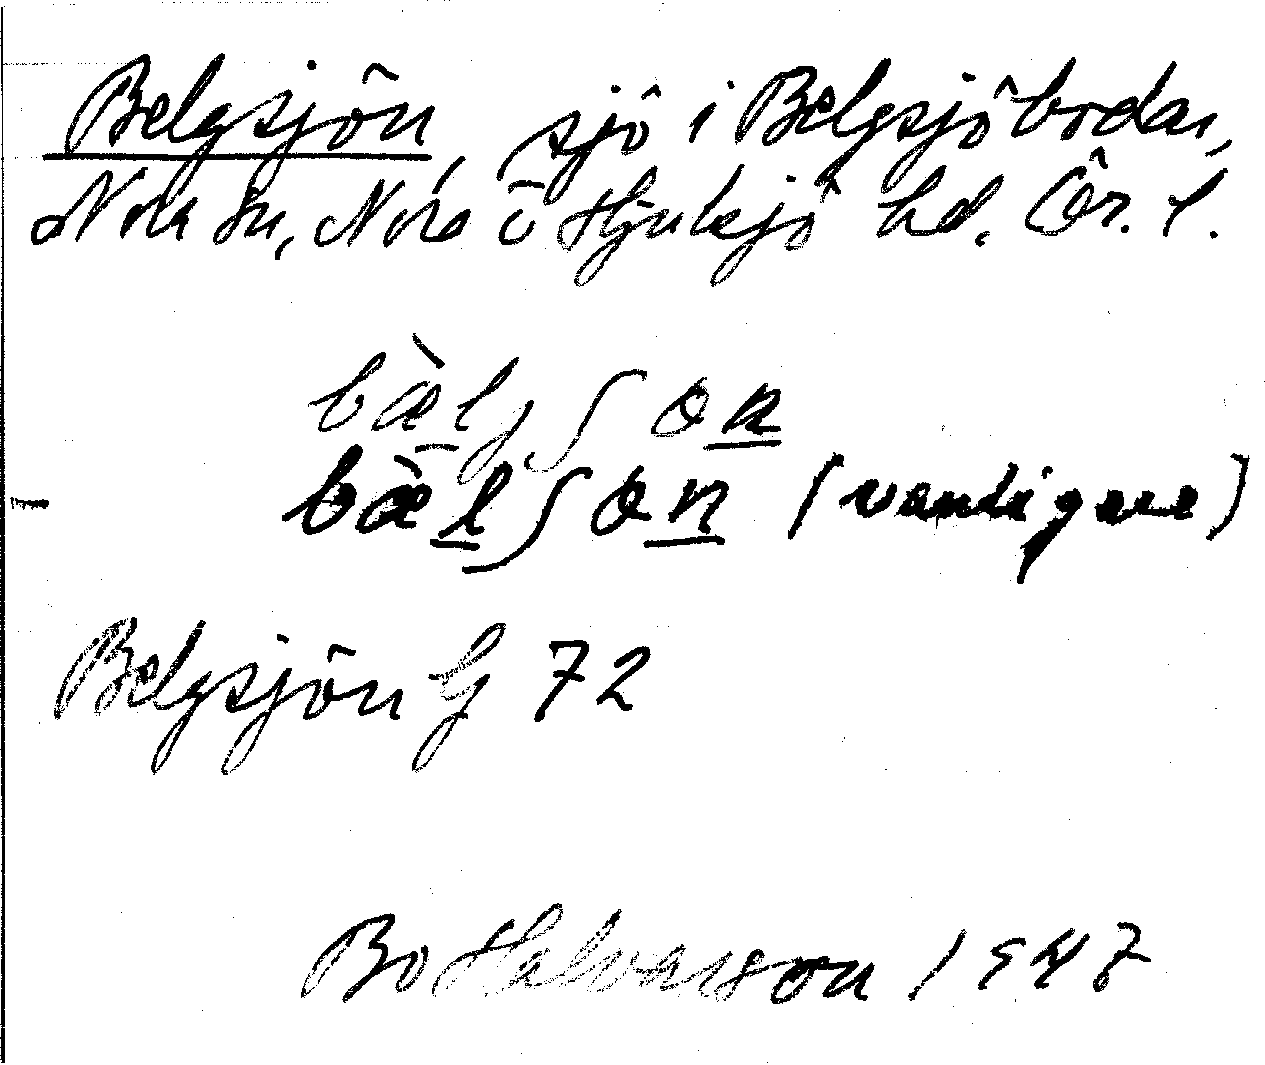 Belgsjön, sjö i Belgsjöbodar,
Nora sn, Nora o Hjulsjö hd. Ör. l.
bæ̀lj ʃ ön
bæ̀l ʃ ön (vanligare)
Belgsjön G 72
Bo Halvarson 1947